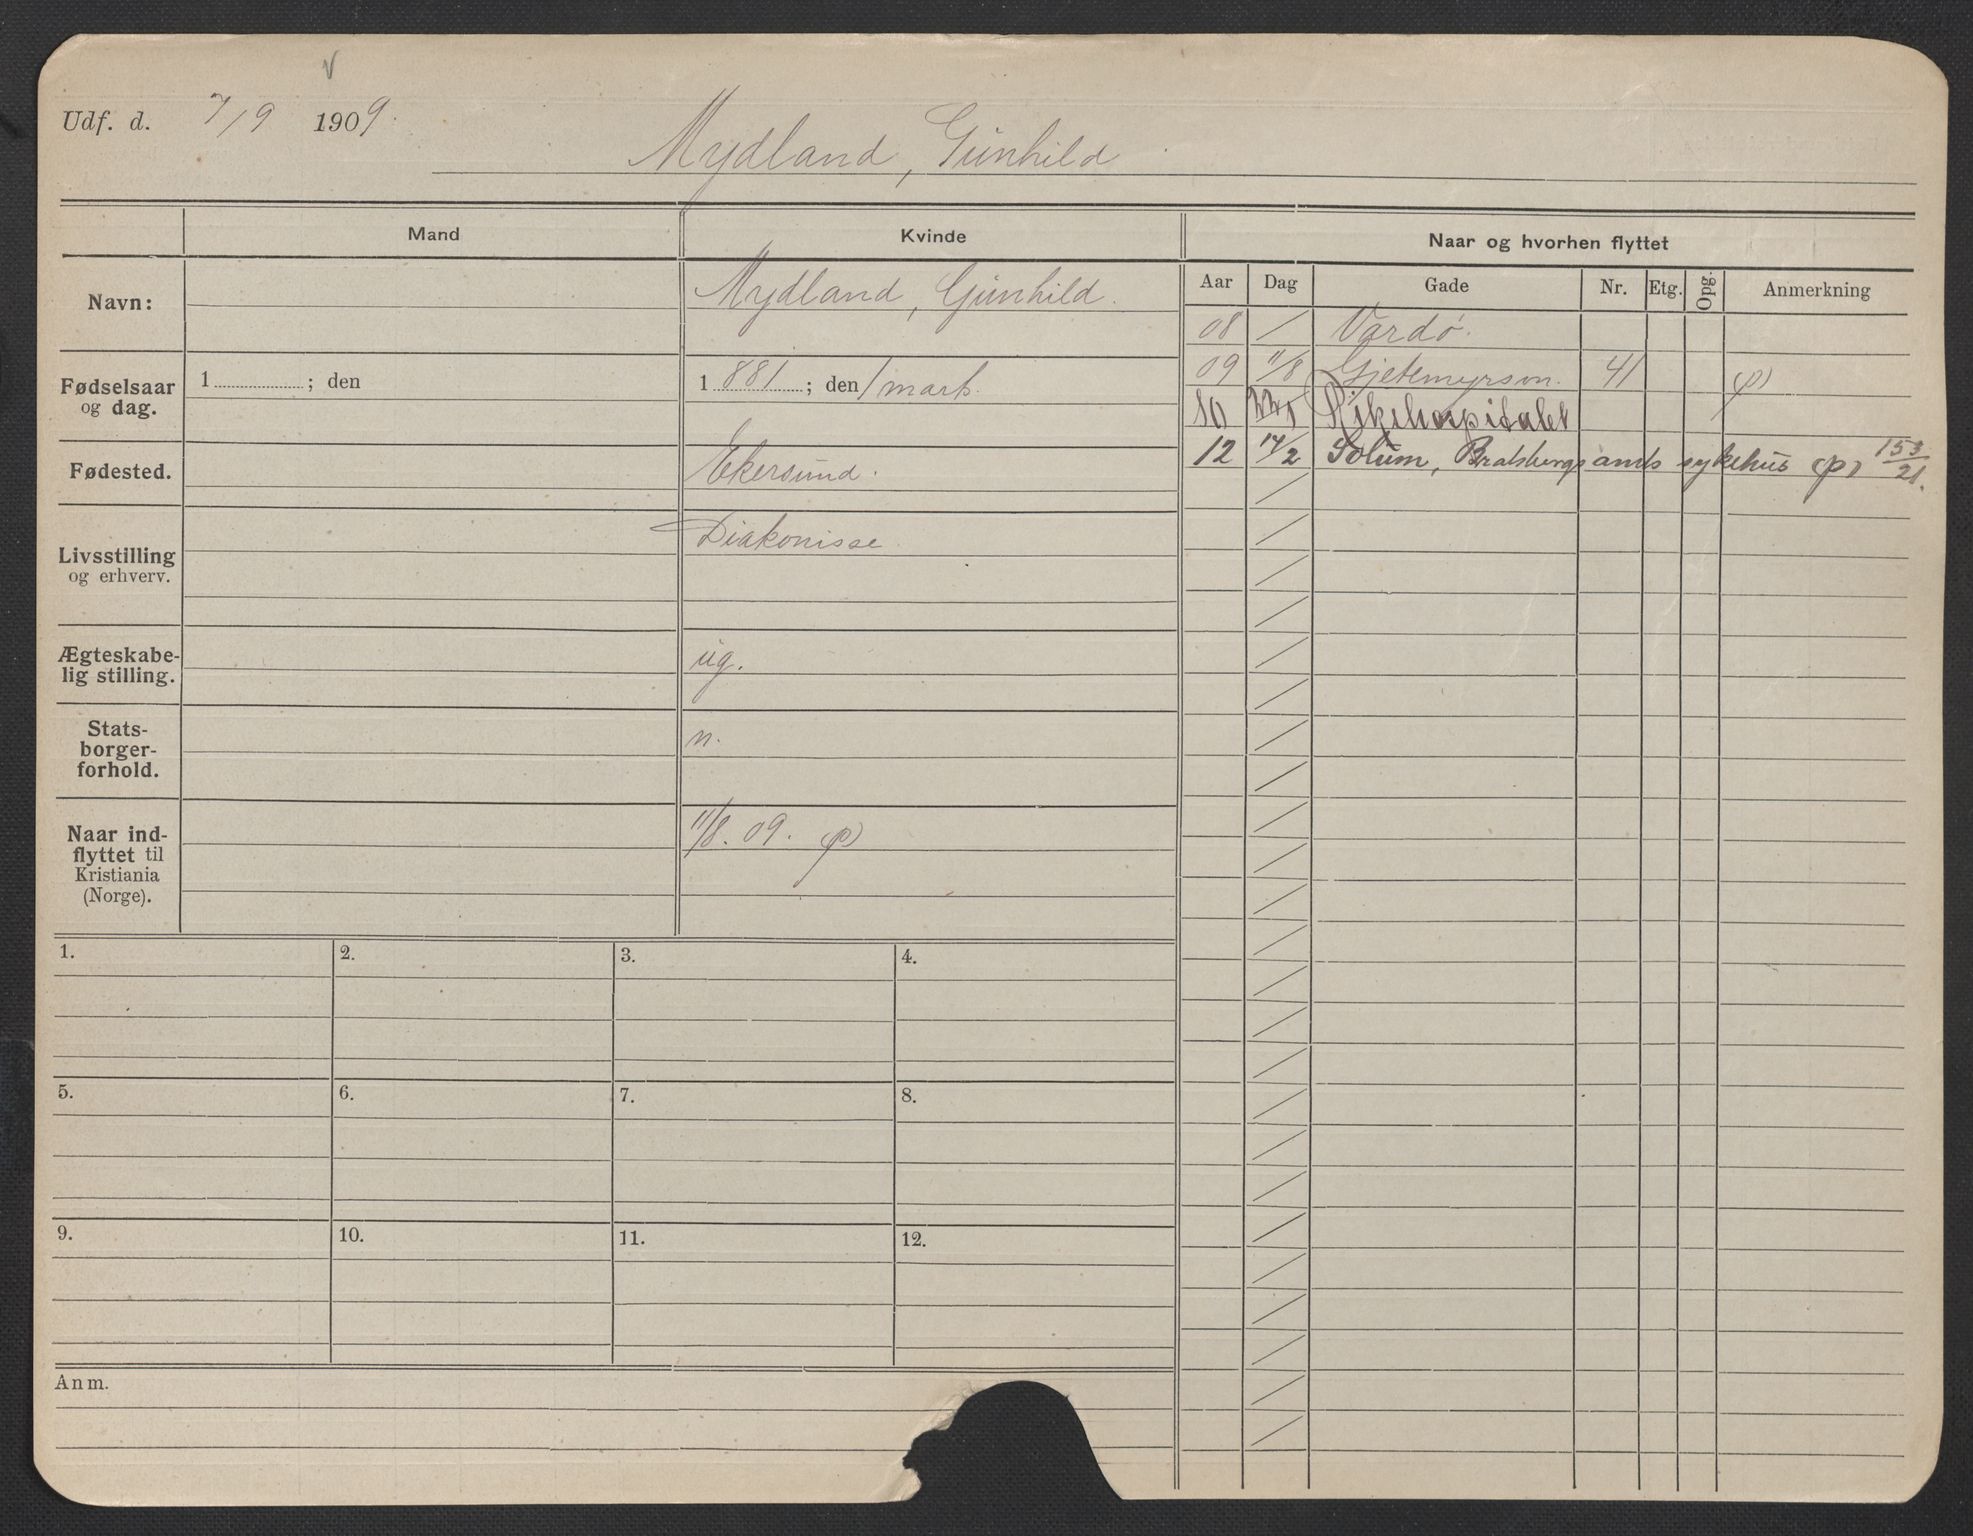 v
Udf. d. 7/9 1909.
Mydland, Gunhild
Mand
Kvinde
Naar og hvorhen flyttet
Navn:
Mydland, Gunhild.
Aar Dag Gade Nr. Etg. Opg. Anmerkning
08 / Vardø.
09 11/8 Gjetemyrsvn. 41 (p)
10 Rikshospitalet
12 14/2 Solum, Bratsbergs amts sykehus (p) 153/21.
Fødselsaar
og dag.
1 ; den
1 881 ; den 1 marts.
Fødested.
Ekersund.
Livsstilling
og erhverv.
Diakonisse
Ægteskabe-
lig stilling.
ug.
Stats-
borger-
forhold.
n.
Naar ind-
flyttet til
Kristiania
(Norge).
11/8. 09. (p)
1. 2. 3. 4.
5. 6. 7. 8.
9. 10. 11. 12.
Anm.